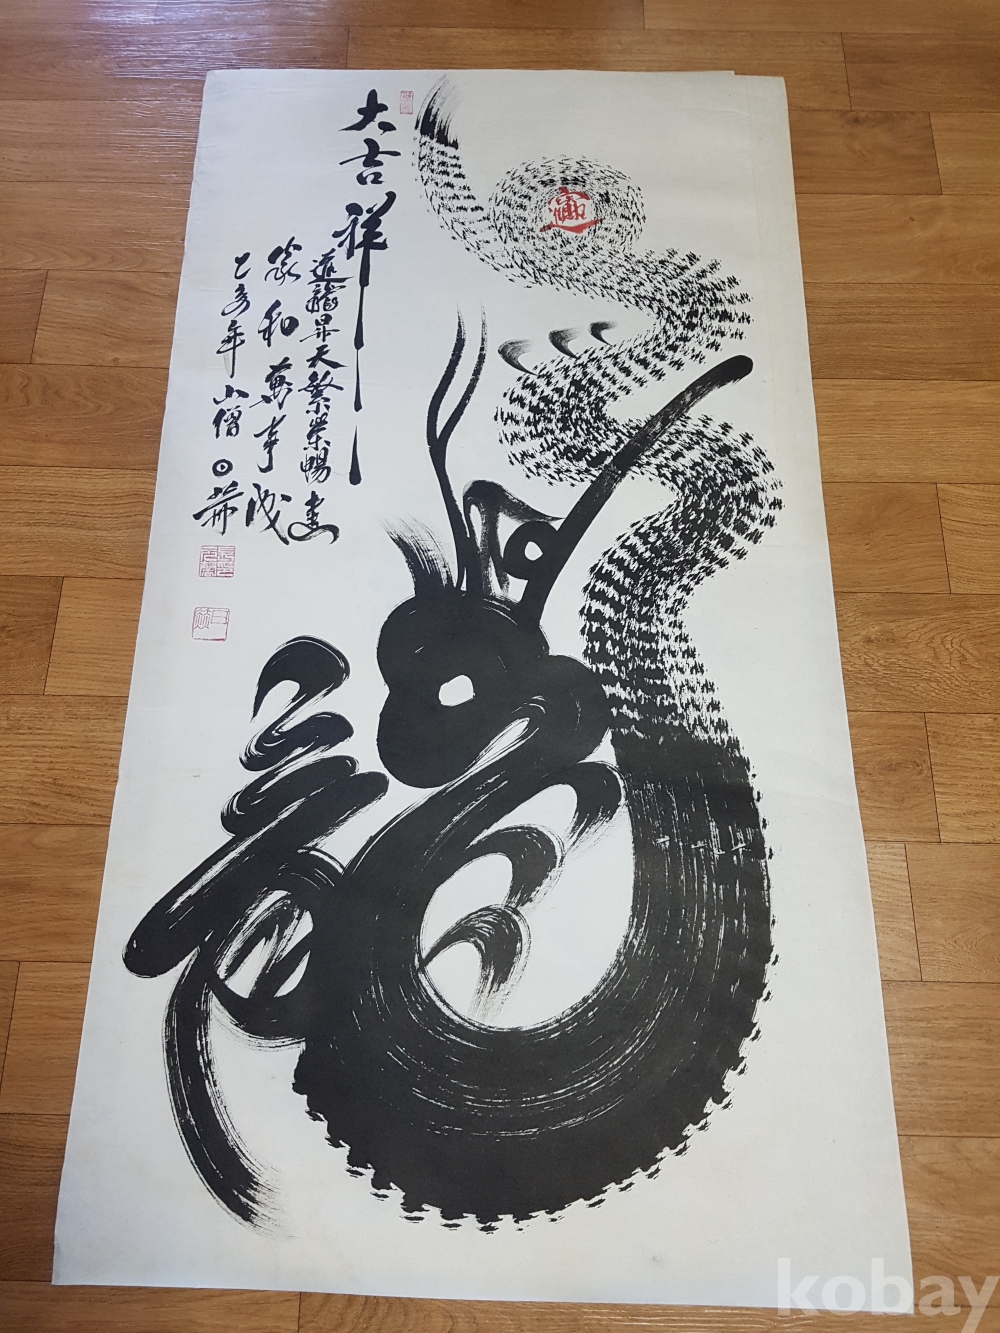 大吉祥
龍昇天繁榮暢達
家和萬事成
亥年 小僧
龍
kobay